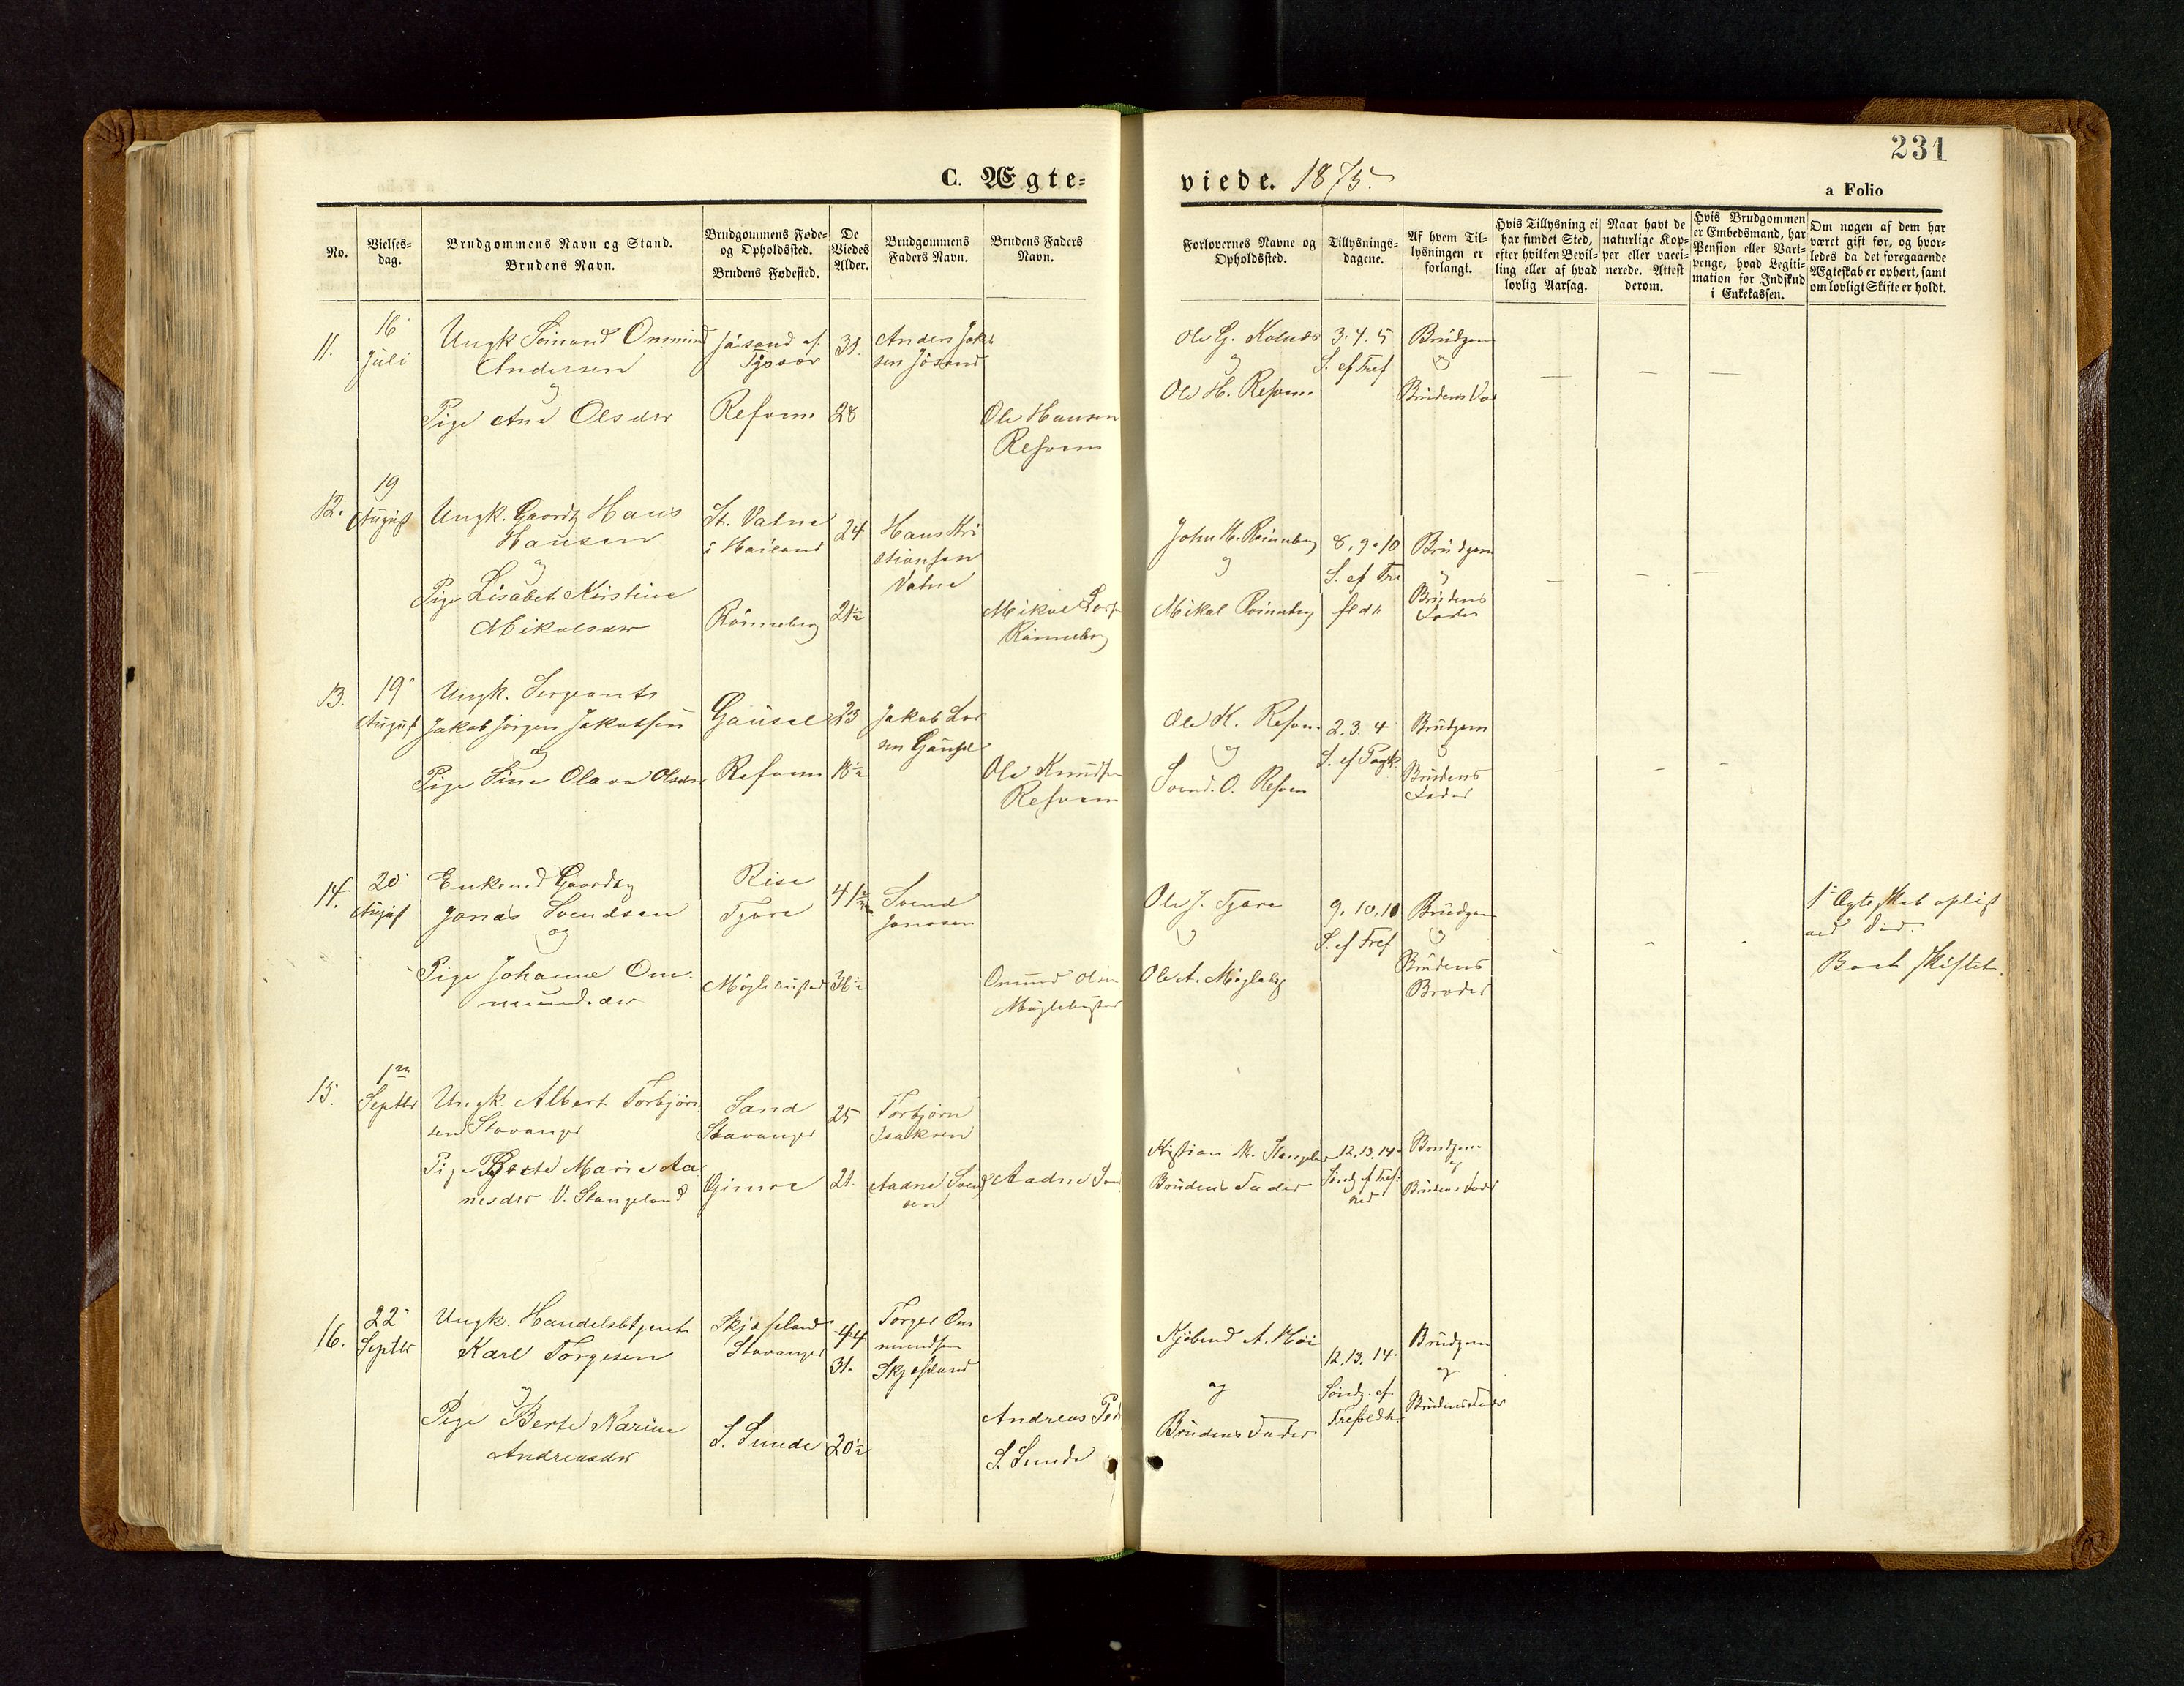 231
C. Ægte-
viede. 1875.
a Folio
No.
Vielses-
dag.
Brudgommens Navn og Stand.
Brudens Navn.
Brudgommens Føde-
og Opholdssted.
Brudens Fødested.
De
Viedes
Alder.
Brudgommens
Faders Navn.
Brudens Faders
Navn.
Forlovernes Navne og
Opholdssted.
Tillysnings-
dagene.
Af hvem Til-
lysningen er
forlangt.
Hvis Tillysning ei
har fundet Sted,
efter hvilken Bevil-
ling eller af hvad
lovlig Aarsag.
Naar havt de
naturlige Kop-
per eller vacci-
nerede. Attest
derom.
Hvis Brudgommen
er Embedsmand, har
Pension eller Vart-
penge, hvad Legiti-
mation for Indskud
i Enkekassen.
Om nogen af dem har
været gift før, og hvor-
ledes da det foregaaende
Ægteskab er ophørt, samt
om lovligt Skifte er holdt.
11.
16
Juli
Ungk
Andersen
og
Pige Ane Olsdtr
Jåsund
Refsum
31.
28
Anders Jakob
sen Jåsund
Ole Hansen
Refsum
Ole G.
og
Ole H. Refsum
3. 4. 5
S. ef Tref
Brudgom
og
Brudens
12.
19
August
Ungk. Gaardbr Hans
Hansen
og
Pige Lisabet Kirstine
Mikalsdtr
St. Vatne
i
Rönneberg
24
21½
Hans Kri
stiansen
Vatne
Mikal
Rönneberg
John M. Rönneberg
og
Mikal Rönneberg
8. 9. 10
S. ef Tre
Brudgom
og
Brudens
Fader
13.
19
August
Ungk. Sergeant
Jakob Jörgen Jakobsen
og
Pige Sine Olava Olsdtr
Gausel
Refsum
23
18½
Jakob Lar
sen Gausel
Ole Knudsen
Refsum
Ole K. Refsum
og
Svend. O. Refsum
2. 3. 4
S. ef
Brudgom
og
Brudens
Fader
14.
20
August
Enkemd Gaardbr
Jonas Svendsen
og
Pige Johanne Om
mundsdtr
Rise
Tjore
Möglebustad
41½
36½
Svend
Jonasen
Omund Olsen
Möglebustad
Ole J. Tjore
og
Ole A.
9. 10. 11
S. ef Tref
Brudgom
og
Brudens
Broder
1ste Ægteskab oplöst
ved Död.
Boet skiftet.
15.
1ste
Septbr
Ungk. Albert Torbjörn
sen Stavanger
Pige Berte Marie Aa
nesdtr V. Stangeland
Sand
Stavanger
Gimre
25
21.
Torbjörn
Isaksen
Aadne Svend
sen
Aadne
Kristian M. Stangeland
Brudens Fader
12. 13. 14
Söndg ef Tref
Brudgom
og
Brudens Fader
16.
22
Septbr
Ungk. Handelsbetjent
Karl Torgesen
og
Pige Berte Karine
Andreasdtr
Skjæfeland
Stavanger
S. Sunde
44
31.
20½
Torger Om
mundsen
Skjæfeland
Andreas
S. Sunde
Kjöbmd A. Höi
og
Brudens Fader
12. 13. 14
Söndg. ef.
Trefoldh.
Brudgom
og
Brudens Fader